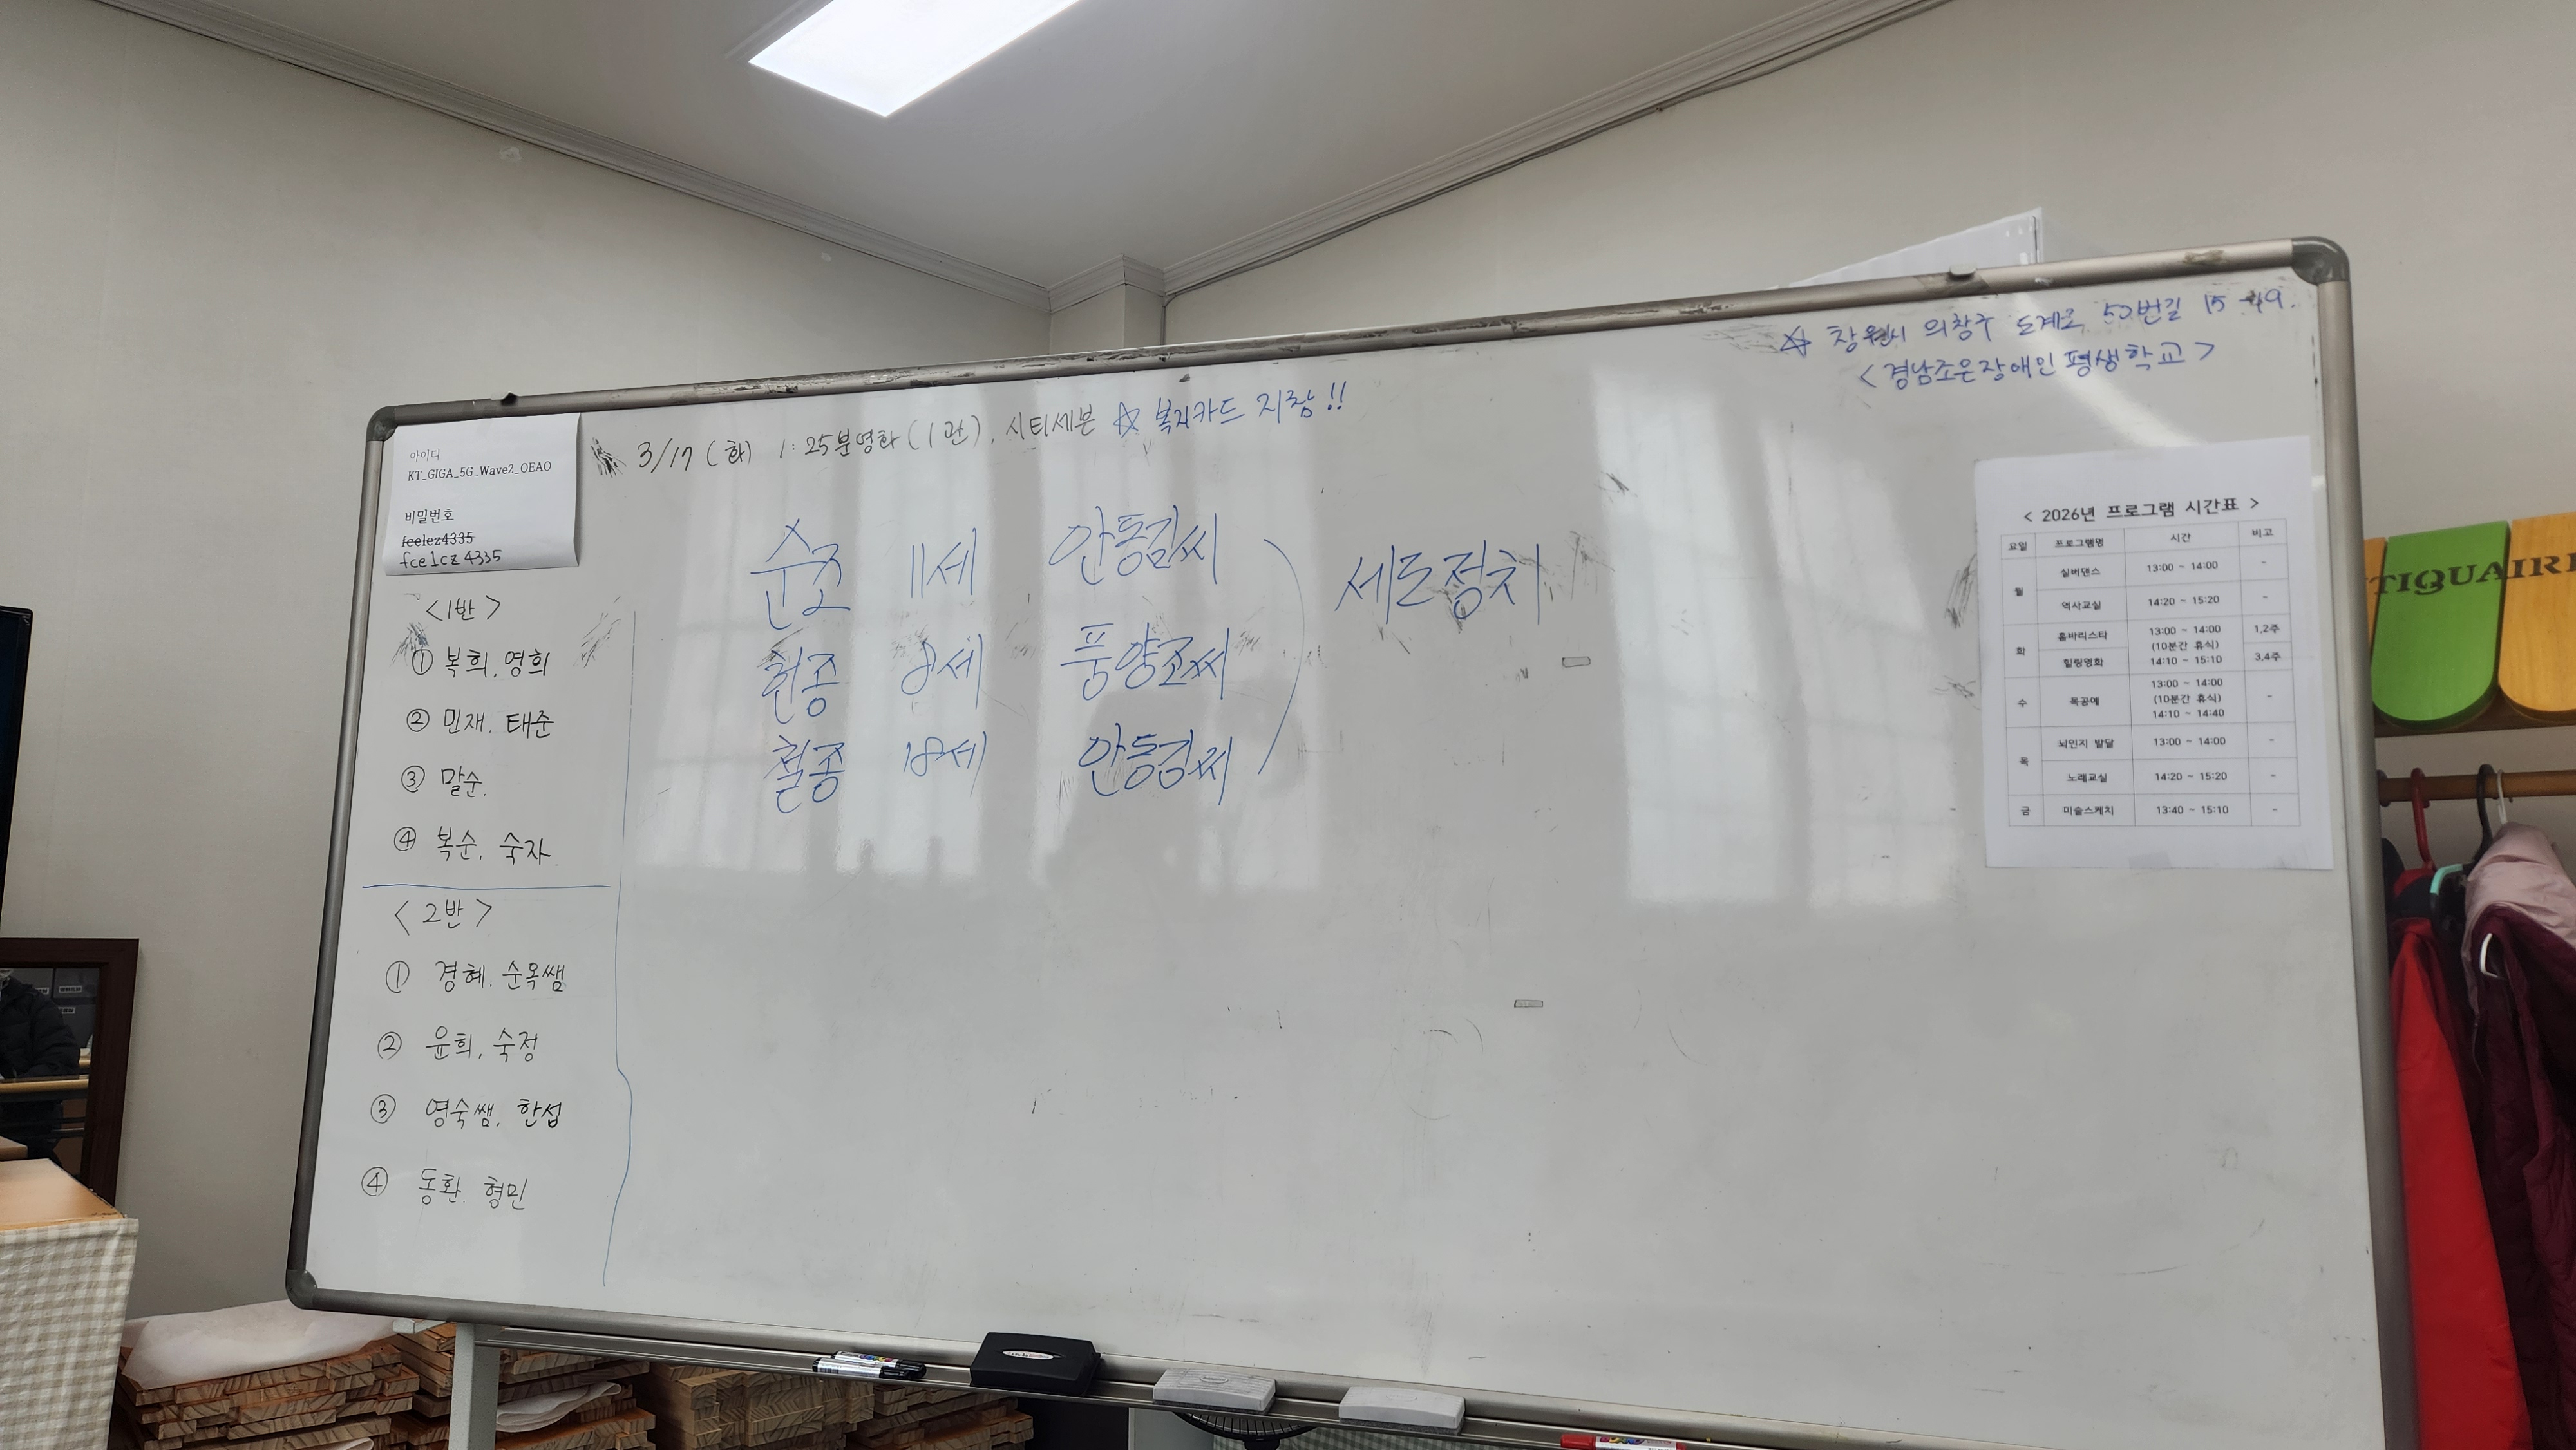 ☆ 창원시 의창구 도계로 50번길 15-49.
<경남조은장애인평생학교>
3/17 (화) 1:25분영화(1관), 시티세븐 ☆ 복지카드 지참!!
아이디
KT_GIGA_5G_Wave2_0EA0
비밀번호
feelez4335
fce1cz4335
<1반>
① 복희, 영희
② 민재, 태준
③ 말순,
④ 복순, 숙자
<2반>
① 경혜, 순옥쌤
② 윤희, 숙정
③ 영숙쌤, 한섭
④ 동환, 형민
순조 11세 안동김씨
헌종 8세 풍양조씨
철종 18세 안동김씨
세도정치
< 2026년 프로그램 시간표 >
요일 프로그램명 시간 비고
월 실버댄스 13:00 ~ 14:00 -
역사교실 14:20 ~ 15:20 -
화 홈바리스타 13:00 ~ 14:00 1,2주
(10분간 휴식)
힐링영화 14:10 ~ 15:10 3,4주
수 목공예 13:00 ~ 14:00 -
(10분간 휴식)
14:10 ~ 14:40
목 뇌인지 발달 13:00 ~ 14:00 -
노래교실 14:20 ~ 15:20 -
금 미술스케치 13:40 ~ 15:10 -
TIQUAIRE